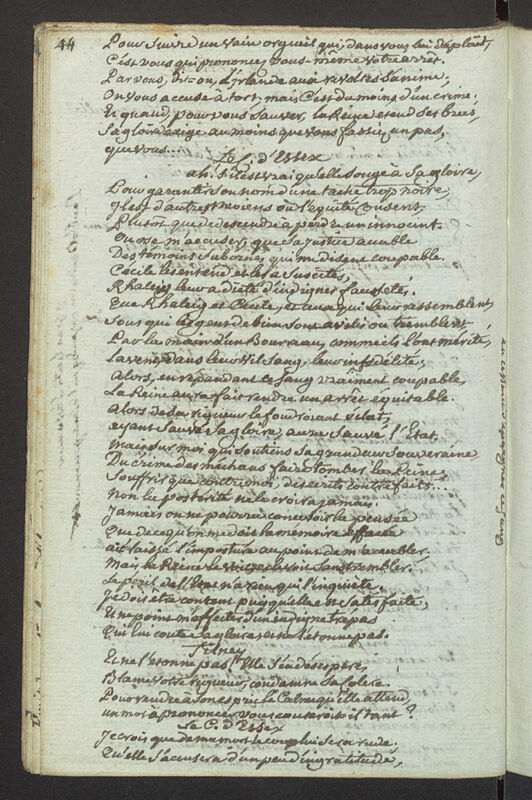 44
Pour suivre un vain orgueil qui, dans vous lui déplaît,
C'est vous qui prononcez vous-même votre arrêt.
Par vous, dit-on, l'Irlande aux révoltes s'anime,
On vous accuse à tort, mais c'est du moins d'un crime;
Et quand, pour vous sauver, la Reine étend ses bras,
Sa gloire exige au moins que vous fassiez un pas,
que vous...
Le C. d'Essex
ah! s'il est vrai qu'elle songe à sa gloire,
Pour garantir son nom d'une tache trop noire,
Il est d'autres moiens où l'équité consent,
Plutôt que de descendre à perdre un innocent.
On ose m'accuser, que sa justice accable
Des témoins subornés qui me disent coupable.
Cécile les entend et les a suscités,
Rhaleig leur a dicté d'indignes faussetés.
Que Rhaleig et Cécile, et ceux qui leur ressemblent,
Sous qui les gens de bien sont avilis ou tremblent
Par la main d'un Bourreau, comme ils l'ont mérité,
Lavent, dans leur vil sang, leur infidélité;
Alors, en répandant ce sang vraiment coupable,
La Reine aura fait rendre un arrêt équitable.
Alors de sa rigueur le foudroiant éclat,
ayant sauvé sa gloire, aura sauvé l'Etat.
mais sur moi, qui soutiens sa grandeur souveraine
Du crime des méchans faire tomber la peine!
Souffrir que contre moi, des écrits contrefaits...
Non la postérité ne le croira jamais.
Jamais on ne pourra concevoir la pensée
Que de ce qu'on me doit la mémoire effacée
ait laissé l'imposture au point de m'accabler.
Mais la Reine le voit sans trembler.
Le péril de l'Etat n'a rien qui l'inquiète.
Je dois être content puisqu'elle en est satisfaite,
Et ne point m'affecter d'un indigne trépas
Qui lui coute sa gloire, et ne l'étonne pas.
Tilney
Et ne l'étonne pas! Elle s'en désespère,
Blâme votre rigueur, condamne sa colère.
Pour rendre à son esprit le calme qu'elle attend,
un mot à prononcer vous couteroit-il tant?
Le C. d'Essex
Je crois que de ma mort le coup lui sera rude,
Qu'elle s'accusera d'un peu d'ingratitude,